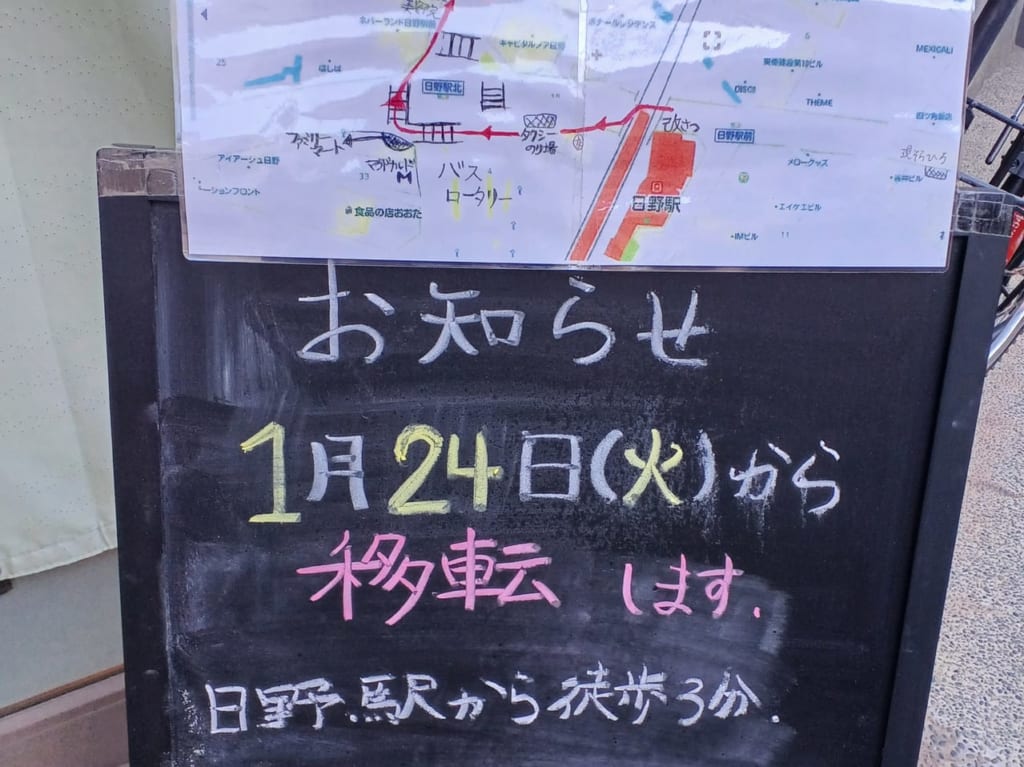 ネバーランド日野駅前
ボナールレジデンス
キャピタルノア日野
MEXICALI
25
6
はしば
美術建設第10ビル
DISCI
日野駅北
THEME
改さつ
四ツ角飯店
タクシー
のり場
日野駅前
ファミリー
マート
アイアージュ日野
マクドナルド
M
メロークッズ
33
バス
ロータリー
ーションフロント
食品の店おおた
日野駅
エイケエビル
IMビル
11
お知らせ
1月24日(火)から
移転します.
日野駅から徒歩3分.